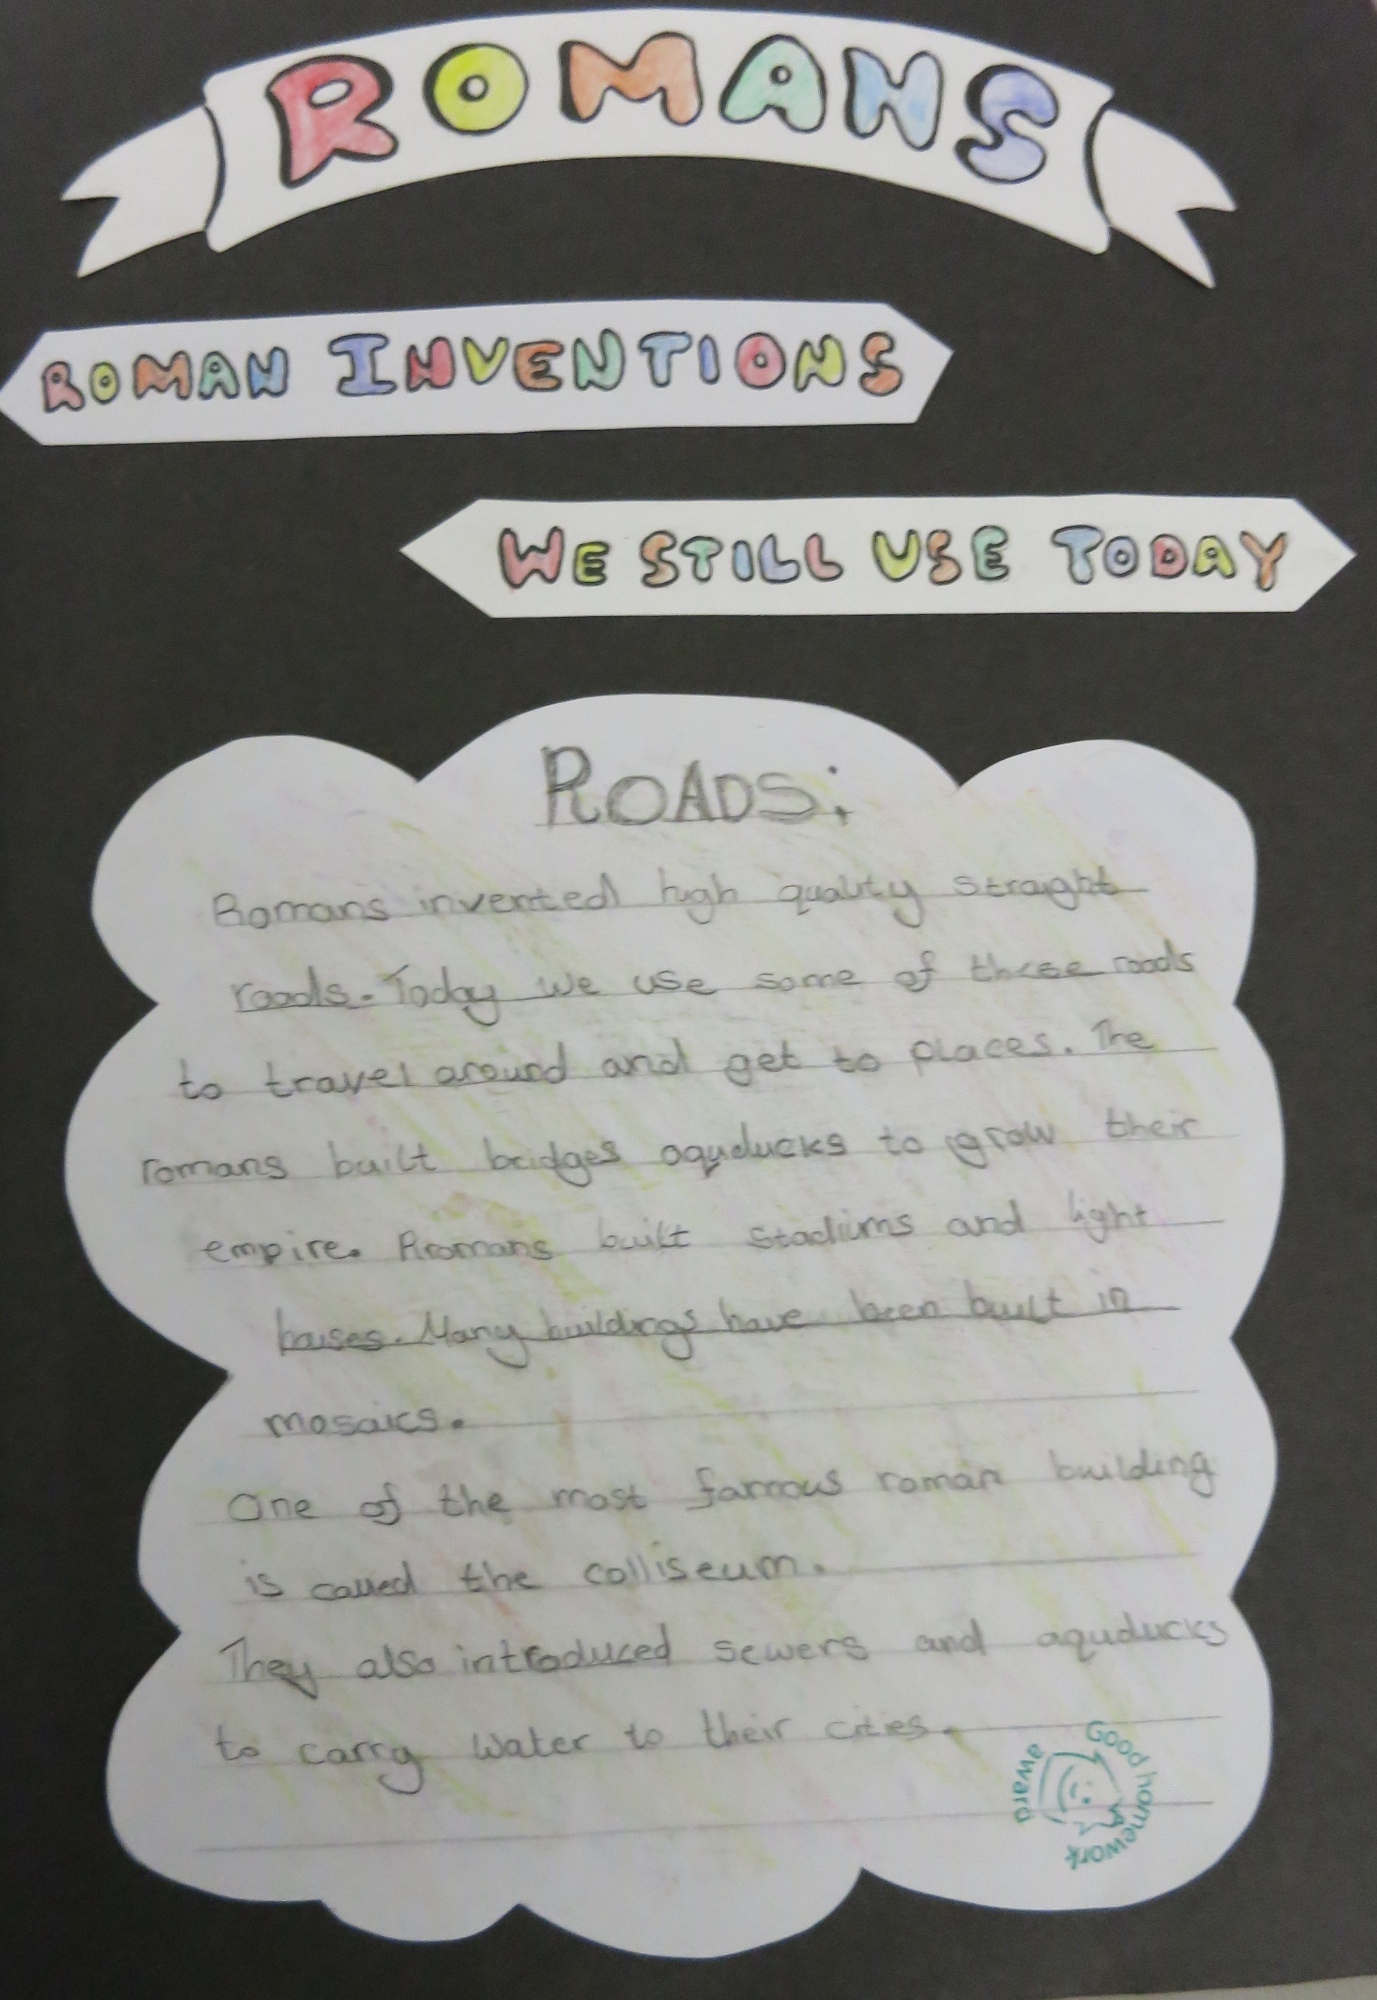 ROMANS
ROMAN INVENTIONS
WE STILL USE TODAY
ROADS:
Romans invented high quality straight
roads. Today we use some of these roads
to travel around and get to places. The
romans built bridges aquducks to grow their
empire. Rromans built stadiums and light
houses. Many buildings have been built in
mosaics.
One of the most famous roman building
is called the colliseum.
They also introduced sewers and aquducks
to carry water to their cities.
Good homework award